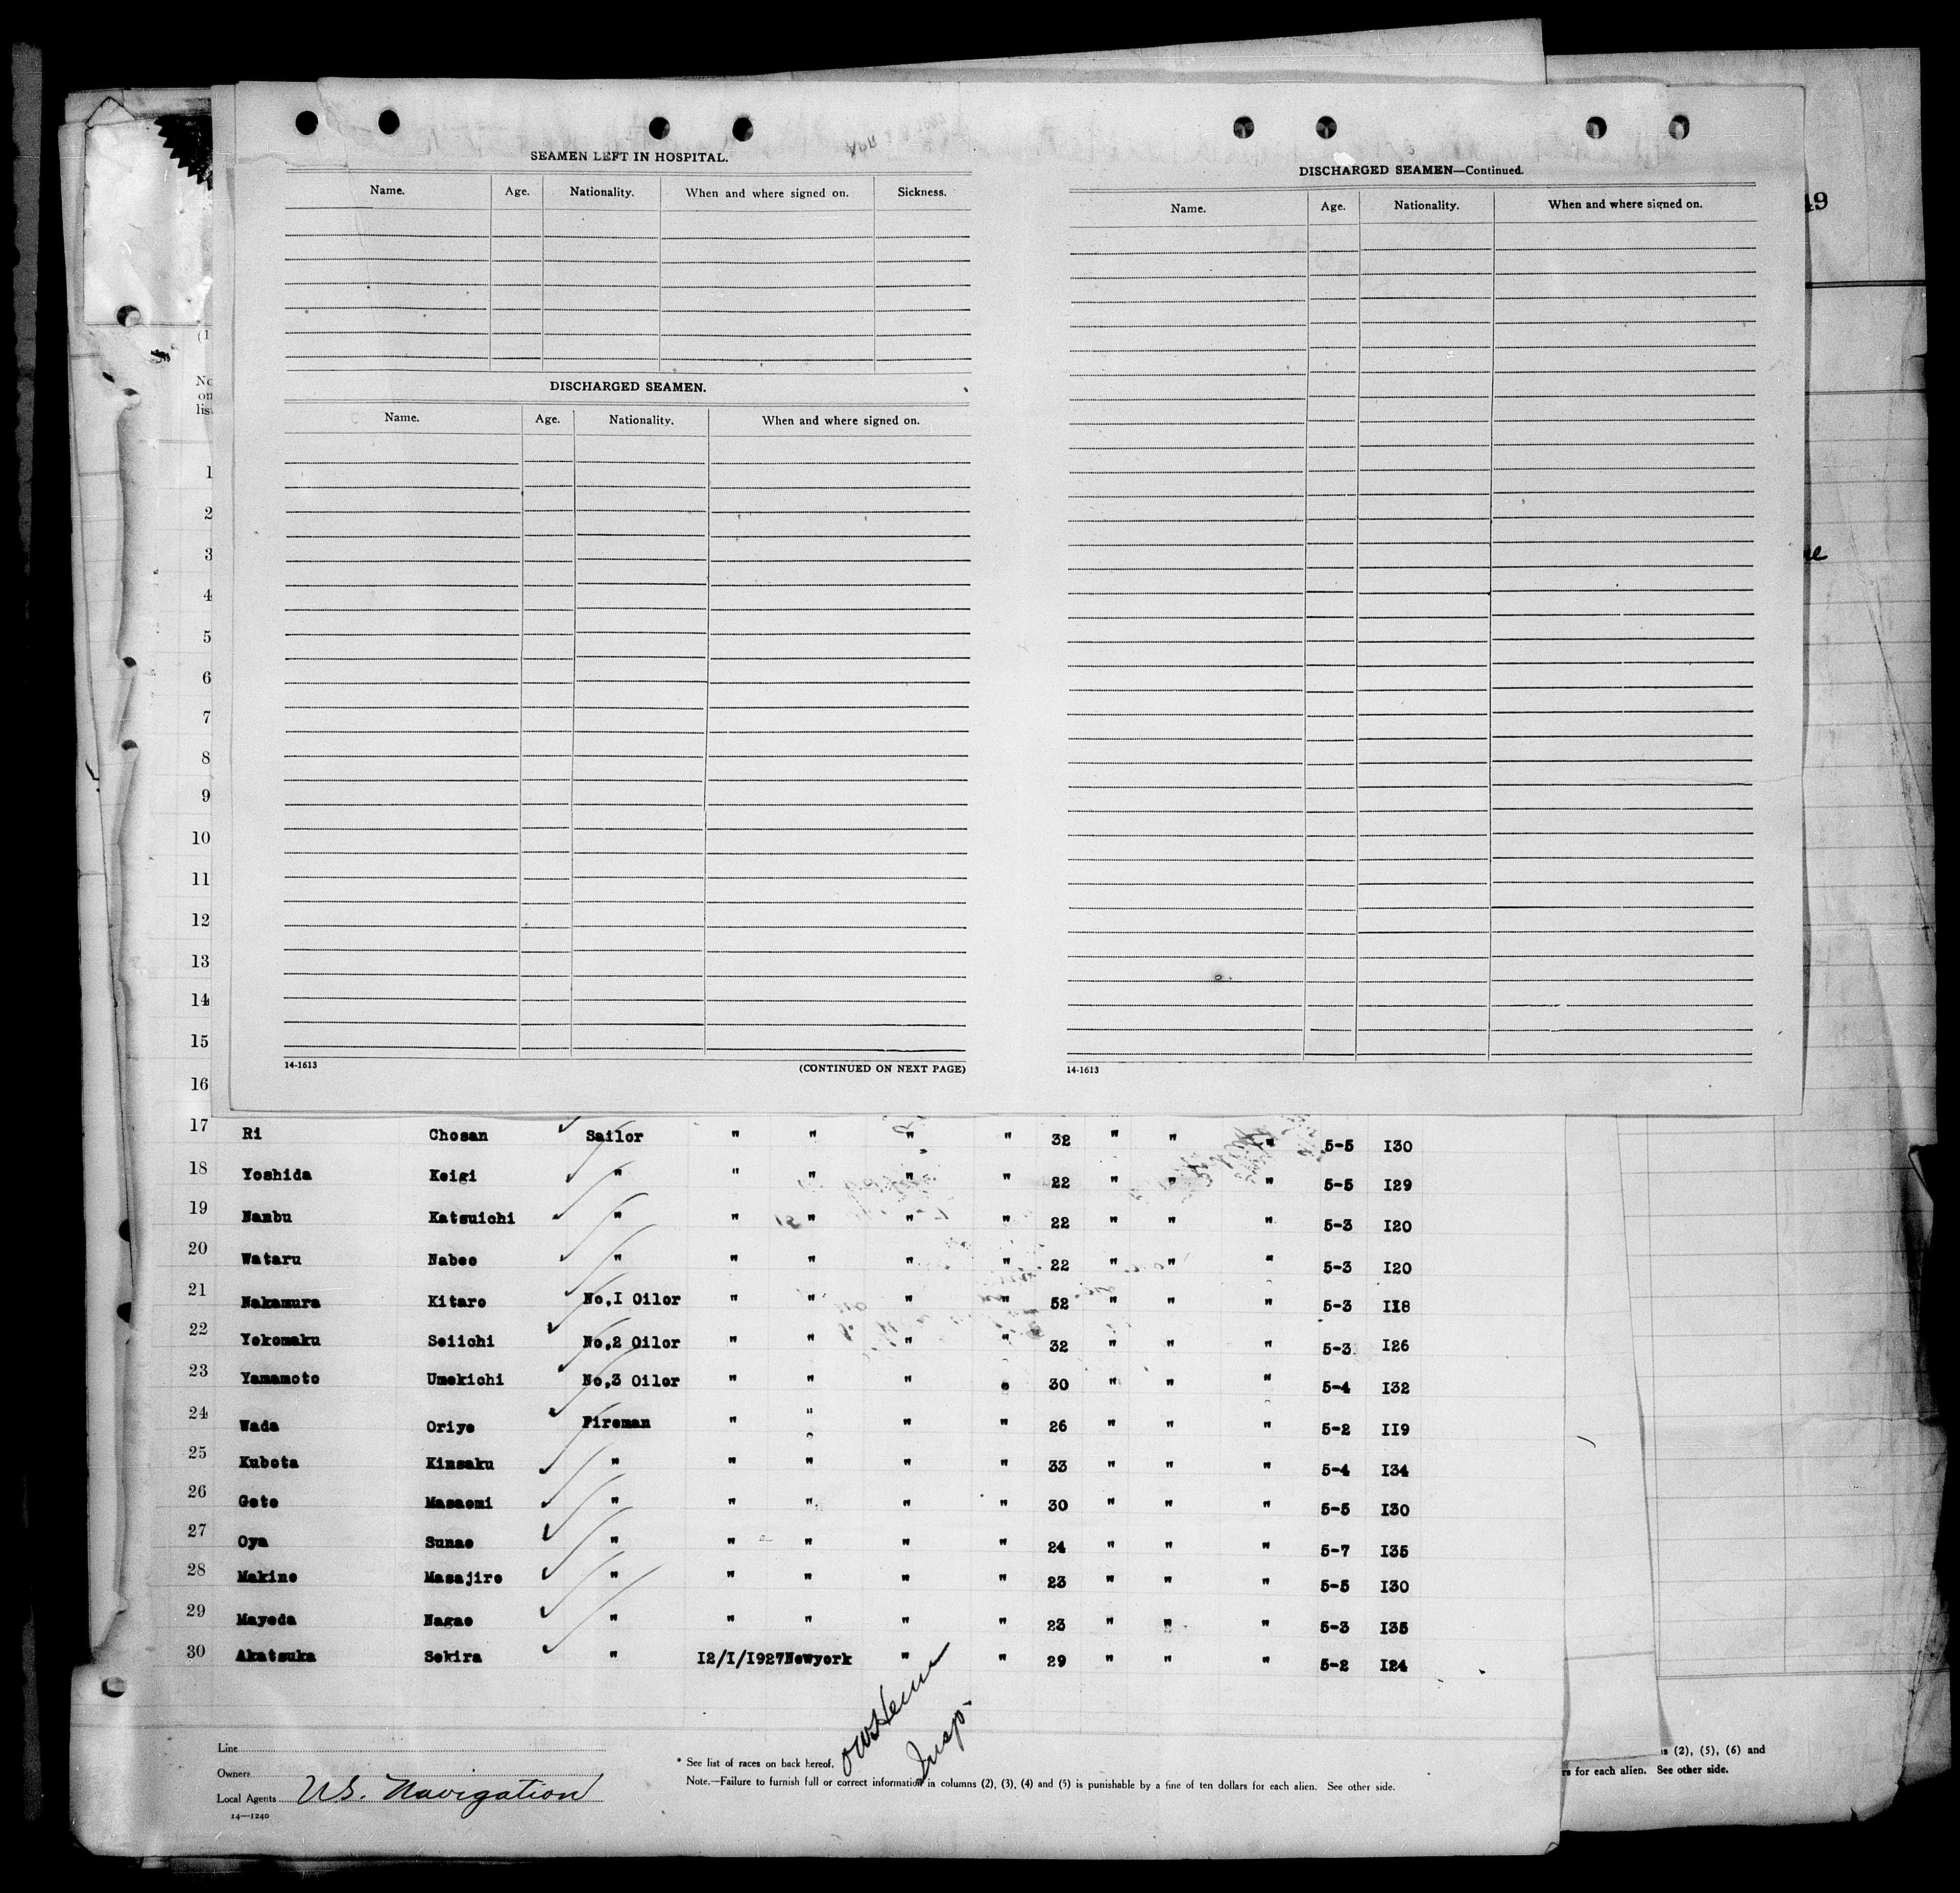 SEAMEN LEFT IN HOSPITAL.
Name. Age. Nationality. When and where signed on. Sickness.
DISCHARGED SEAMEN.
Name. Age. Nationality. When and where signed on.
14-1613 (CONTINUED ON NEXT PAGE)
DISCHARGED SEAMEN—Continued.
Name. Age. Nationality. When and where signed on.
14-1613
49
(1
No
on
list
1
2
3
4
5
6
7
8
9
10
11
12
13
14
15
16
17 Ri Chosan Sailor " " " " 32 " " " 5-5 I30
18 Yoshida Keigi " " " " " 22 " " " 5-5 I29
19 Nanbu Katsuichi " " " " " 22 " " " 5-3 I20
20 Wataru Nabeo " " " " " 22 " " " 5-3 I20
21 Nakamura Kitaro No.I Oilor " " " " 52 " " " 5-3 II8
22 Yokomaku Seiichi No.2 Oilor " " " " 32 " " " 5-3 I26
23 Yamamoto Umekichi No.3 Oilor " " " " 30 " " " 5-4 I32
24 Wada Oriye Fireman " " " " 26 " " " 5-2 II9
25 Kubota Kinsaku " " " " " 33 " " " 5-4 I34
26 Goto Masaomi " " " " " 30 " " " 5-5 I30
27 Oya Sunao " " " " " 24 " " " 5-7 I35
28 Makino Masajiro " " " " " 23 " " " 5-5 I30
29 Mayeda Nagao " " " " " 23 " " " 5-3 I35
30 Akatsuka Sekira " I2/I/I927 Newyork " " 29 " " " 5-2 I24
Line
Owners
Local Agents U.S. Navigation
14—1240
Insp.
* See list of races on back hereof.
Note.—Failure to furnish full or correct information in columns (2), (3), (4) and (5) is punishable by a fine of ten dollars for each alien. See other side.
s (2), (5), (6) and
rs for each alien. See other side.